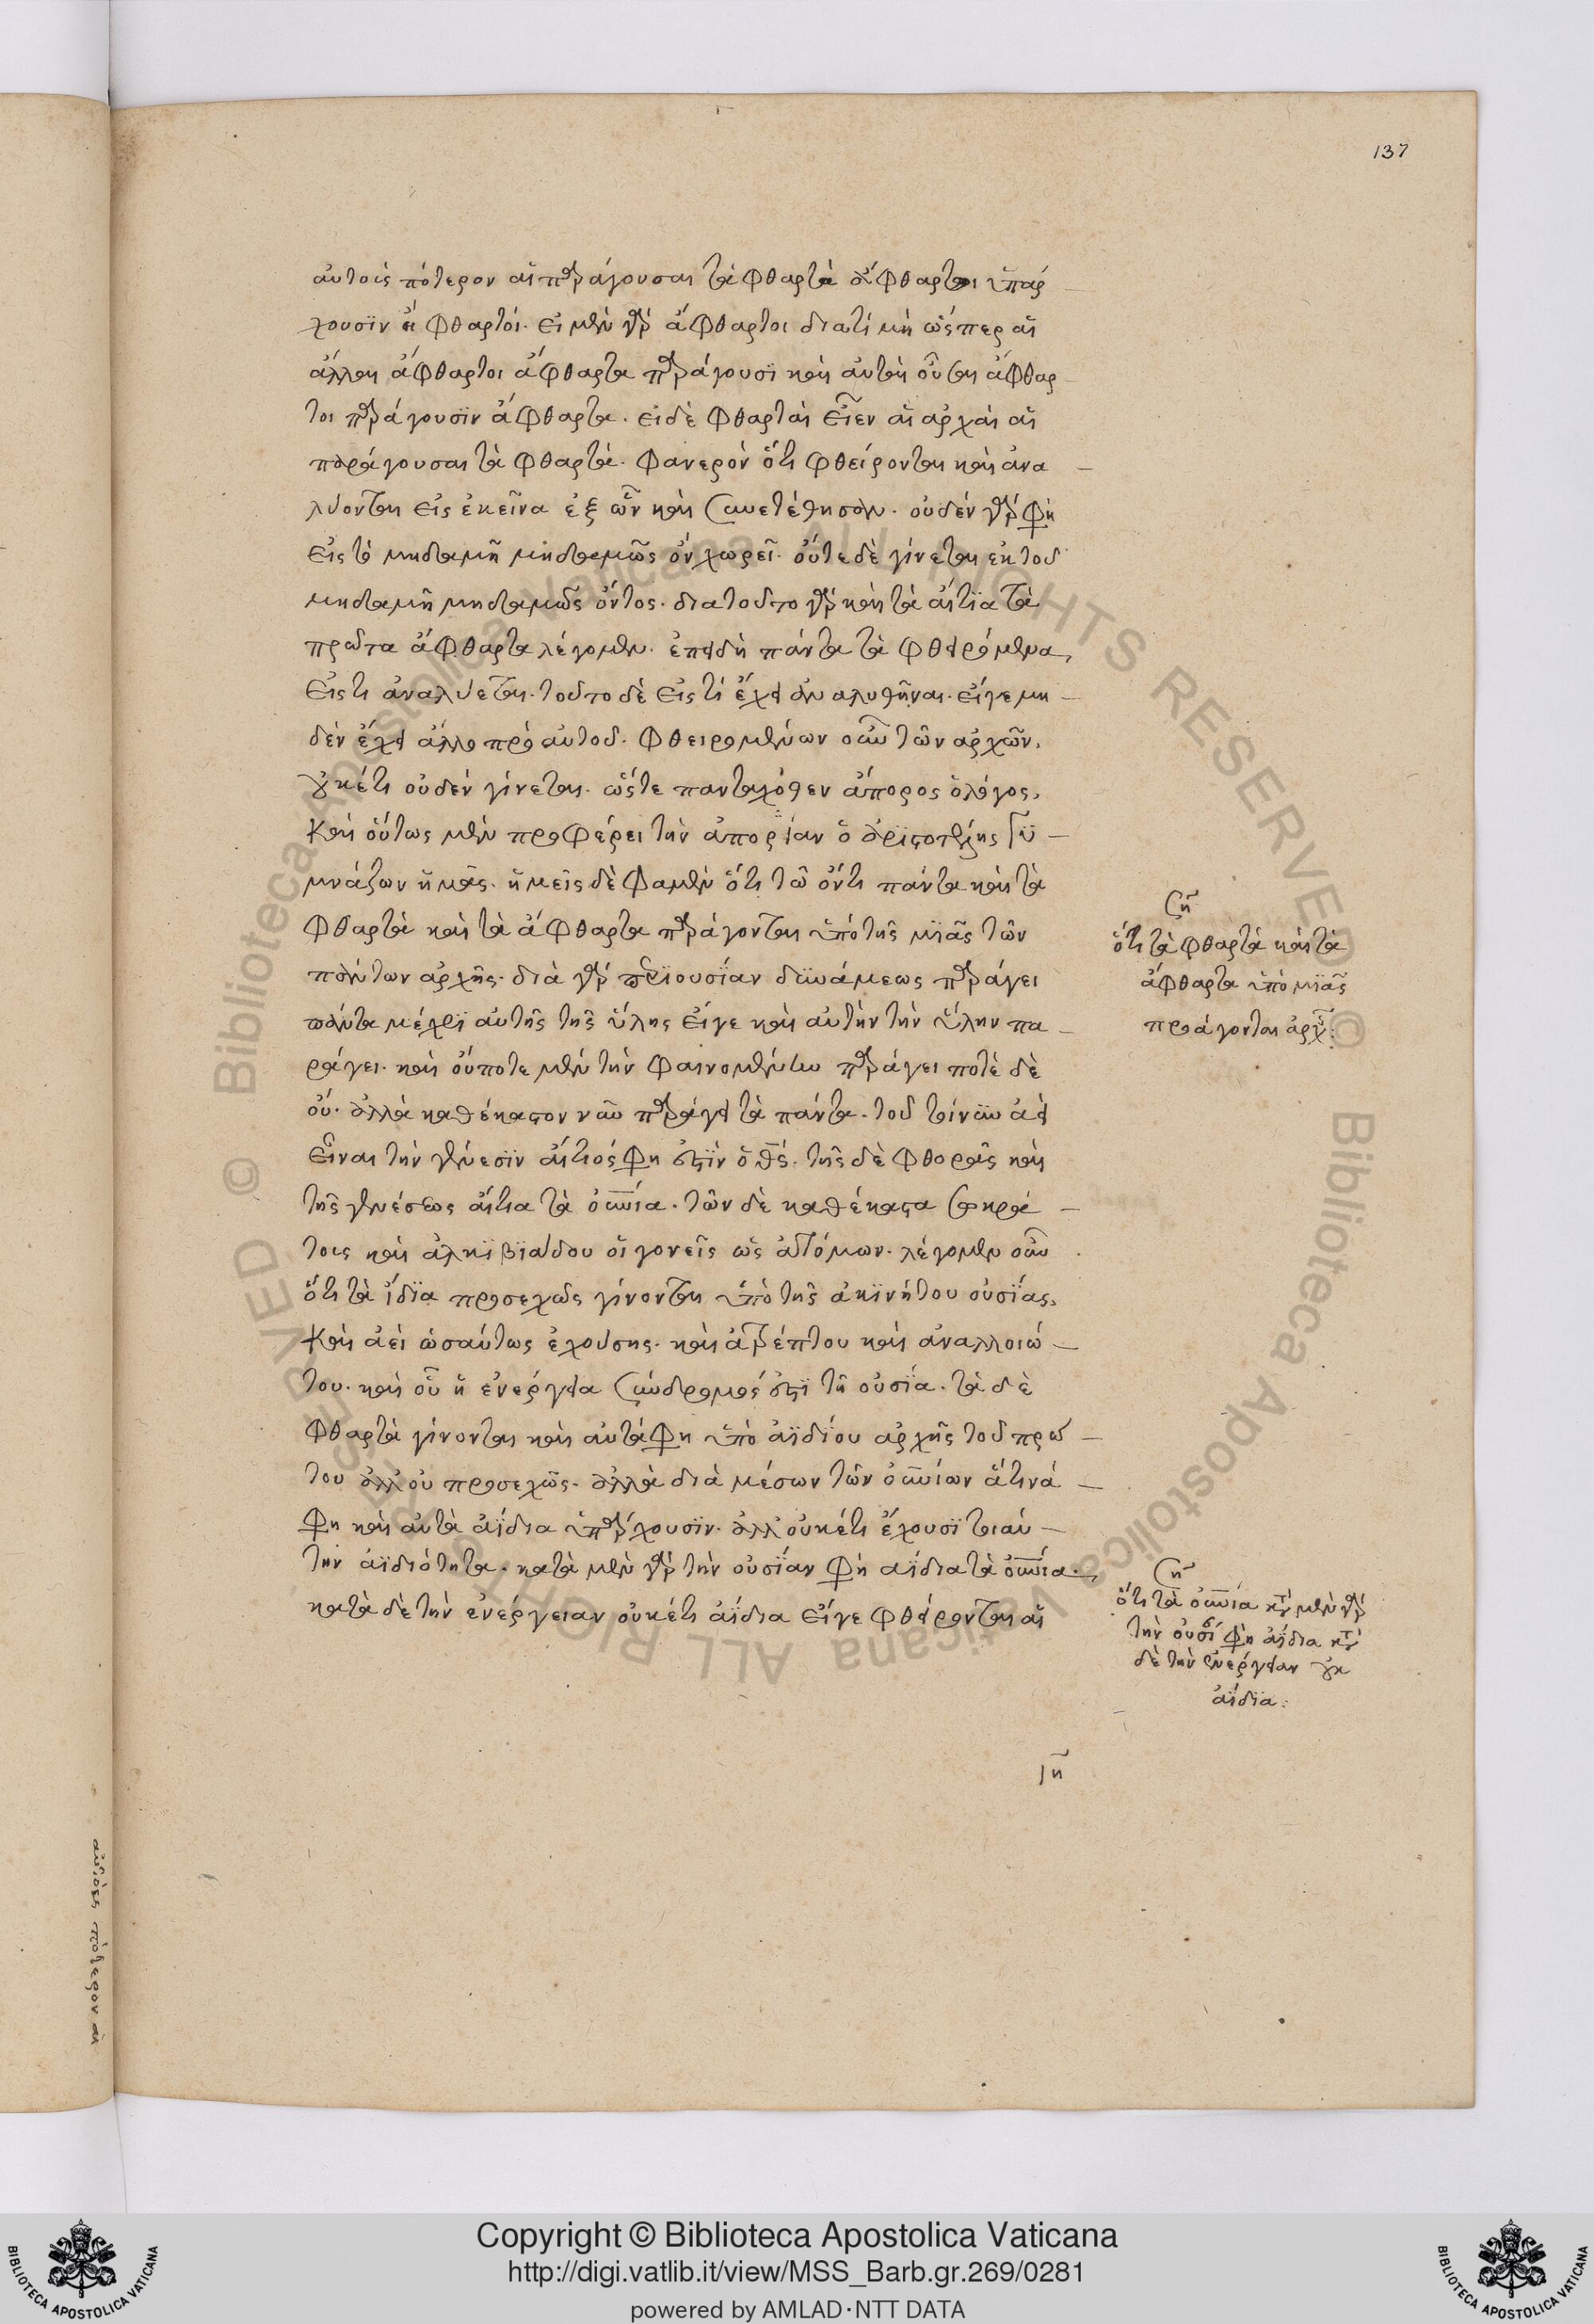 137
αὐτοῖς πότερον αἱ παράγουσαι τὰ φθαρτὰ ἄφθαρτοι ὑπάρ
χουσϊν ἢ φθαρτοί. εἰ μὲν γὰρ ἄφθαρτοι διατί μὴ ὥσπερ αἱ
ἄλλαι ἄφθαρτοι ἄφθαρτα παράγουσϊ καὶ αὐταὶ οὖσαι ἄφθαρ
τοι παράγουσϊν ἄφθαρτα. εἰ δὲ φθαρταὶ εἶεν αἱ ἀρχαὶ αἱ
παράγουσαι τὰ φθαρτὰ. φανερὸν ὅτι φθείρονται καὶ ἀνα
λύονται εἰς ἐκεῖνα ἐξ ὧν καὶ συνετέθησαν. οὐδὲν γάρ φη
εἰς τὸ μηδαμῆ μηδαμῶς ὂν χωρεῖ. οὔτε δὲ γίνεται ἐκ τοῦ
μηδαμῆ μηδαμῶς ὄντος. διατοῦτο γὰρ καὶ τὰ αἴτϊα τὰ
πρῶτα ἄφθαρτα λέγομεν. ἐπειδὴ πάντα τὰ φθειρόμενα,
εἴς τι ἀναλύεται. τοῦτο δὲ εἰς τί ἔχει ἀναλυθῆναι. εἴγε μη
δὲν ἔχει ἄλλο πρὸ αὐτοῦ. φθειρομένων οὖν τῶν ἀρχῶν,
οὐκέτι οὐδὲν γίνεται. ὥστε πανταχόθεν ἄπορος ὁ λόγος,
Καὶ οὕτως μὲν προφέρει τὴν ἀπορίαν ὁ ἀρϊστοτέλης γϋ
μνάζων ἡμᾶς. ἡμεῖς δὲ φαμὲν ὅτι τῶ ὄντι πάντα καὶ τὰ
φθαρτὰ καὶ τὰ ἄφθαρτα παράγονται ὑπὸ τῆς μϊᾶς τῶν
πάντων ἀρχῆς. διὰ γὰρ περϊουσίαν δϋνάμεως παράγει
πάντα μέχρϊ αὐτῆς τῆς ὕλης εἴγε καὶ αὐτὴν τὴν ὕλην πα
ράγει. καὶ οὔποτε μὲν τὴν φαινομένην παράγει ποτὲ δὲ
οὔ. ἀλλὰ καθέκαστον νῦν παράγει τὰ πάντα. τοῦ τοίνυν ἀεὶ
εἶναι τὴν γένεσϊν αἴτιός φη ἐστϊν ὁ θς. τῆς δὲ φθορᾶς καὶ
τῆς γενέσεως αἴτια τὰ οὐνια. τῶν δὲ καθέκαστα σωκρά
τους καὶ ἀλκϊβϊάδου οἱ γονεῖς ὡς ἀτόμων. λέγομεν οὖν
ὅτι τὰ ἴδϊα προσεχῶς γίνονται ὑπὸ τῆς ἀκϊνήτου οὐσίας,
Καὶ ἀεὶ ὡσαύτως ἐχούσης. καὶ ἀτρέπτου καὶ ἀναλλοιώ
του. καὶ οὗ ἡ ἐνέργεια σύνδρομός ἐστϊ τῆ οὐσία. τὰ δὲ
φθαρτὰ γίνονται καὶ αὐτά φη ὑπὸ ἀϊδίου ἀρχῆς τοῦ πρώ
του ἀλλ' οὐ προσεχῶς. ἀλλὰ διὰ μέσων τῶν οὐνίων ἅτινά
φη καὶ αὐτὰ ἀΐδια ὑπάρχουσϊν. ἀλλ' οὐκέτι ἔχουσϊ τοιαύ
την ἀϊδιότητα. κατὰ μὲν γὰρ τὴν οὐσίαν φη ἀΐδια τὰ οὐνια.
κατὰ δὲ τὴν ἐνέργειαν οὐκέτι ἀΐδια εἴγε φθείρονται αἱ
ση
ὅτι τὰ φθαρτὰ καὶ τὰ
ἄφθαρτα ὑπὸ μϊᾶς
προάγονται ἀρχ:
ση
ὅτι τὰ οὐνια κτ μὲν γὰρ
τὴν οὐσί φη ἀΐδια κτ
δὲ τὴν ἐνέργειαν οὐκ
ἀΐδϊα:
Copyright © Biblioteca Apostolica Vaticana
http://digi.vatlib.it/view/MSS_Barb.gr.269/0281
powered by AMLAD·NTT DATA